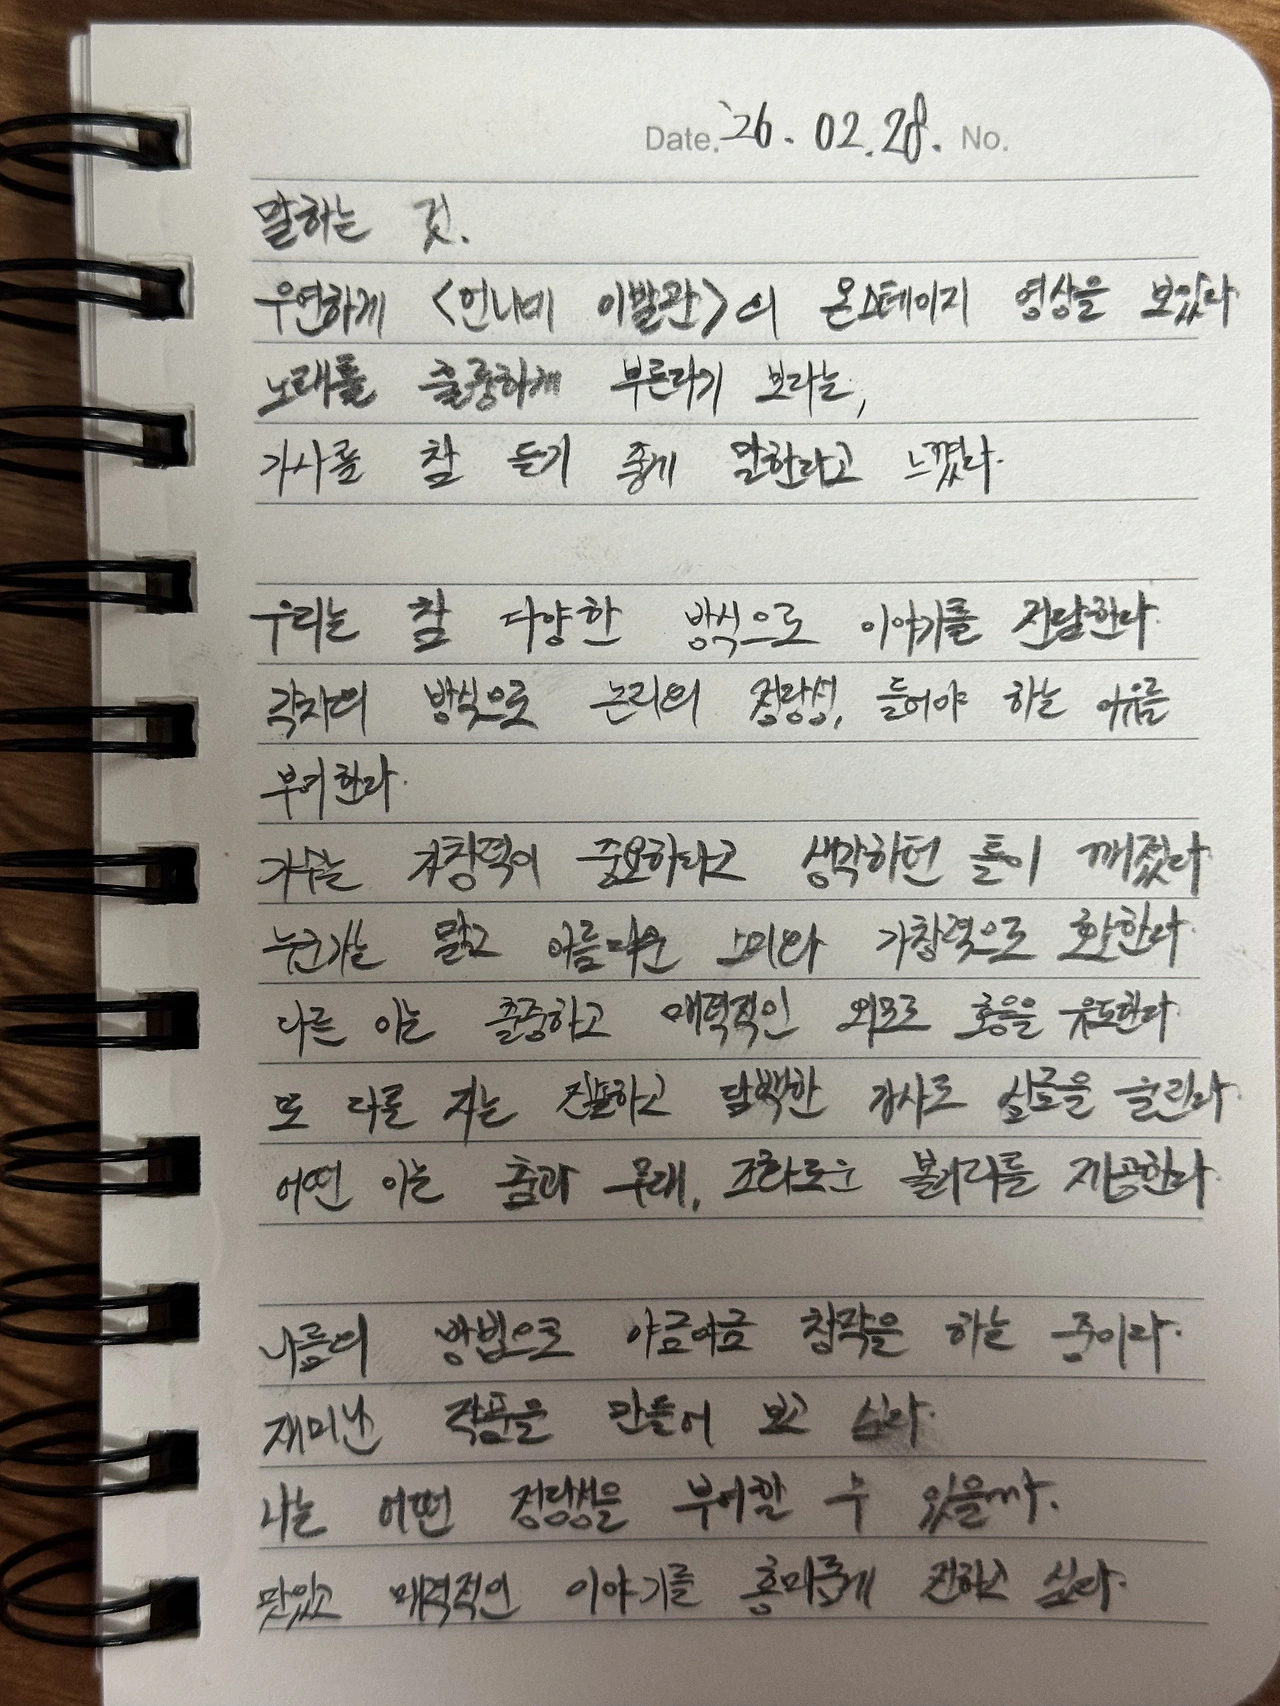 Date. '26. 02. 28. No.
말하는 것.
우연하게 <언니네 이발관>의 온스테이지 영상을 보았다.
노래를 출중하게 부른다기 보다는,
가사를 참 듣기 좋게 말한다고 느꼈다.
우리는 참 다양한 방식으로 이야기를 전달한다.
각자의 방식으로 논리의 정당성, 들어야 하는 이유를
부여한다.
가수는 가창력이 중요하다고 생각하던 틀이 깨졌다.
누군가는 맑고 아름다운 가창력으로 한다.
다른 이는 출중하고 매력적인 외모로 호응을 유도한다.
또 다른 자는 진솔하고 담백한 가사로 심금을 울린다.
어떤 이는 춤과 노래, 조화로운 볼거리를 제공한다.
나름의 방법으로 야금야금 창작을 하는 중이다.
재미난 작품을 만들어 보고 싶다.
나는 어떤 정당성을 부여할 수 있을까.
맛있고 매력적인 이야기를 흥미롭게 전하고 싶다.